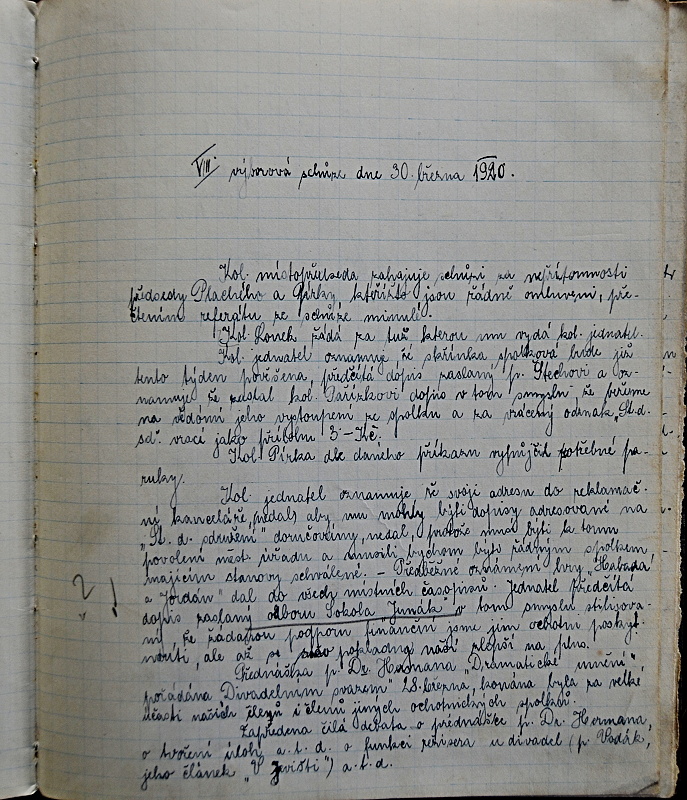 VIII. výborová schůze dne 30. března 1920.
Kol. místopředseda zahajuje schůzi za nepřítomnosti
předsedy Plachého a Pirky, kteřížto jsou řádně omluveni, pře-
čtením referátu ze schůze minulé.
Kol. žádá za tuž kterou mu vydá kol. jednatel.
Kol. jednatel oznamuje, že skřínka spolková bude již
tento týden pověšena, předčítá dopis zaslaný p. Štechovi a oz-
namuje že zaslal kol. Pařízkovi dopis v tom smyslu, že béřeme
na vědomí jeho vystoupení ze spolku a za vrácený odznak „St. d.
sd." vrací jako příbolu 3-Kč.
Kol. Pirka dle daného příkazu vypůjčí potřebné pa-
ruky.
Kol. jednatel oznamuje, že svoji adresu do reklamač-
ní kanceláře, (nedal) aby mu mohly býti dopisy adresované na
„St. d. sdružení" doručovány, nedal, protože musí býti k tomu
povolení měst. úřadu a musili bychom býti řádným spolkem
majícím stanovy schválené. - Předběžné oznámení hry „Habada
a Jordán" dal do všech místních časopisů. Jednatel předčítá
dopis zaslaný odboru Sokola „Junák" v tom smyslu stilizova-
ný, že žádanou podporu finanční jsme jim ochotni poskyt-
nouti, ale až se pokladna naší zlepší na jilno.
Přednáška p. Dr. Hermana „Dramatické umění"
pořádána Divadelním svazem 28. března, konána byla za velké
účasti našich členů i členů jiných ochotnických spolků.
Zapředena čilá debata o přednášce p. Dr. Hermana,
o tvoření úloh a.t.d. o funkci režiséra u divadel (p. Vodák,
jeho článek „V Jevišti") a.t.d.